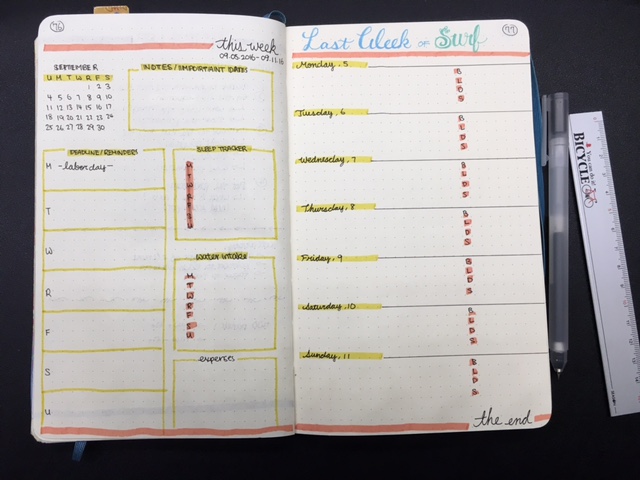 76
this week
09.05.2016-09.11.16
SEPTEMBER
U M T W R F S
1 2 3
4 5 6 7 8 9 10
11 12 13 14 15 16 17
18 19 20 21 22 23 24
25 26 27 28 29 30
NOTES/IMPORTANT DATES
DEADLINE/REMINDERS
M -labor day-
T
W
R
F
S
U
SLEEP TRACKER
M
T
W
R
F
S
U
water intake
M
T
W
R
F
S
U
expenses
77
Last Week OF Surf
Monday, 5
B
L
D
S
Tuesday, 6
B
L
D
S
Wednesday, 7
B
L
D
S
Thursday, 8
B
L
D
S
Friday, 9
B
L
D
S
Saturday, 10
B
L
D
S
Sunday, 11
B
L
D
S
the end
You can do it!
BICYCLE